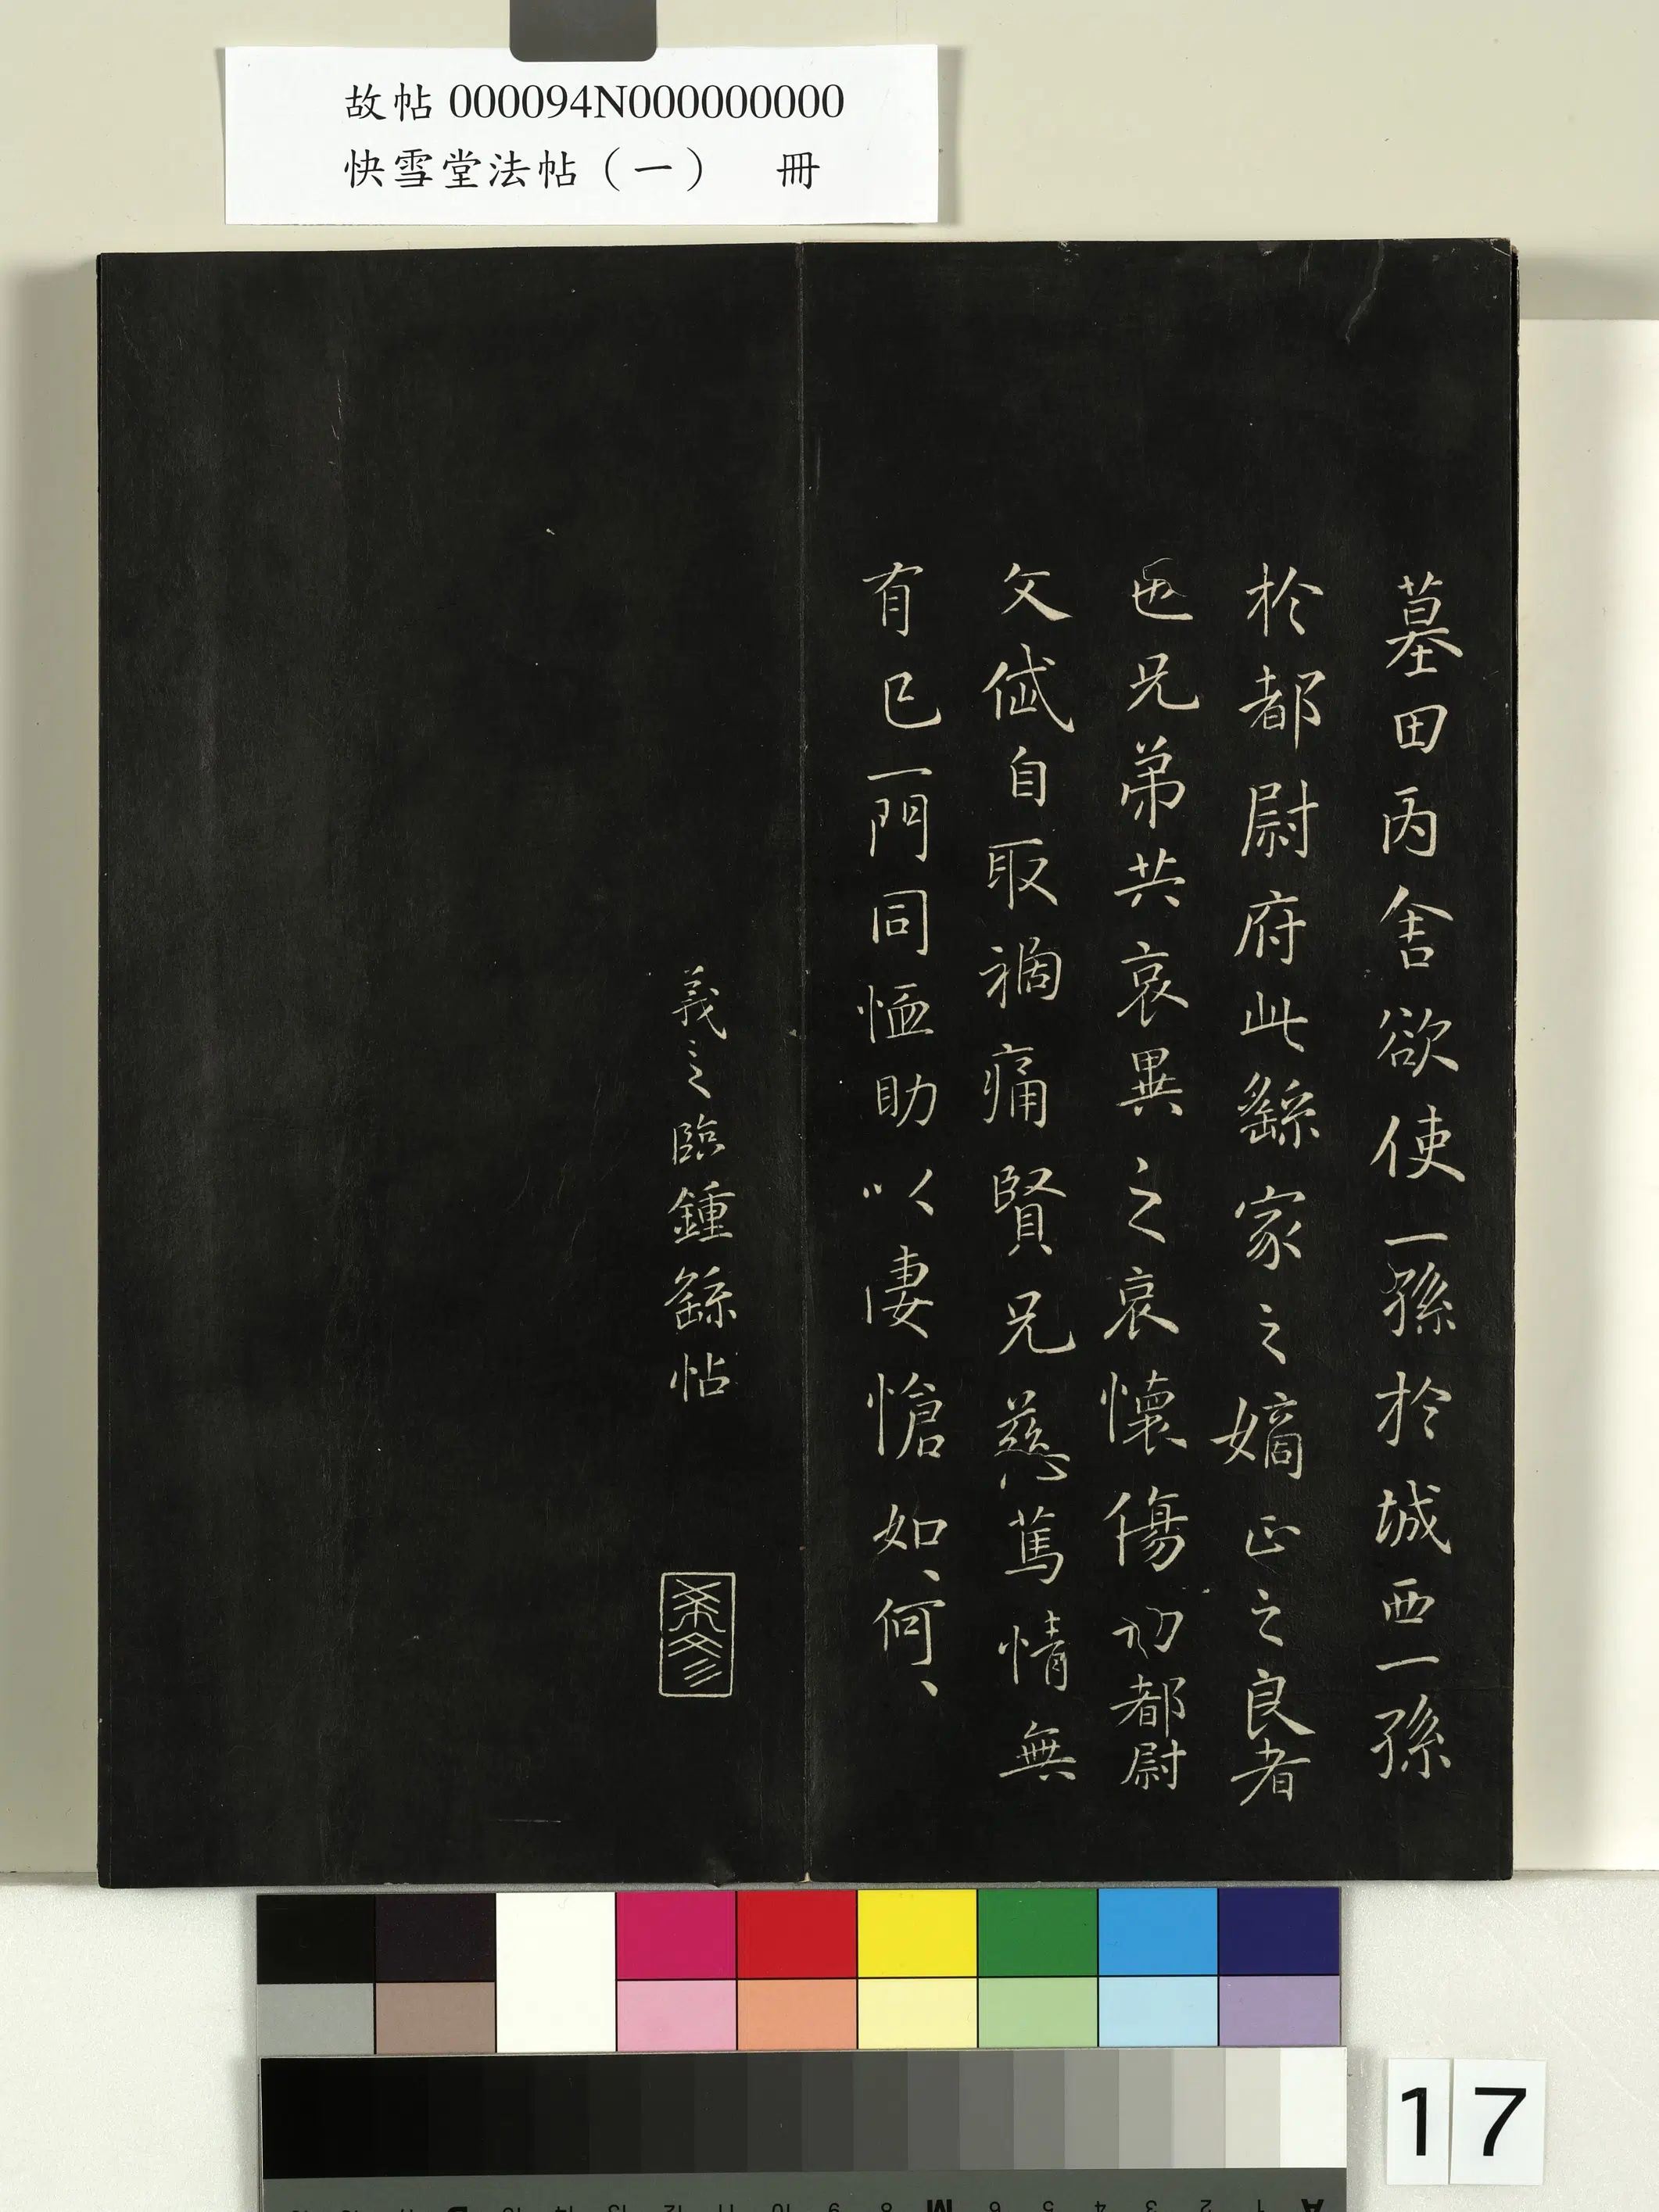 故帖000094N000000000
快雪堂法帖（一） 冊
墓田丙舍欲使一孫於城西一孫
於都尉府此繇家之嫡正之良者
也兄弟共哀異之哀懷傷切都尉
文岱自取禍痛賢兄慈篤情無
有已一門同恤助以悽愴如、何、
羲之臨鍾繇帖
17